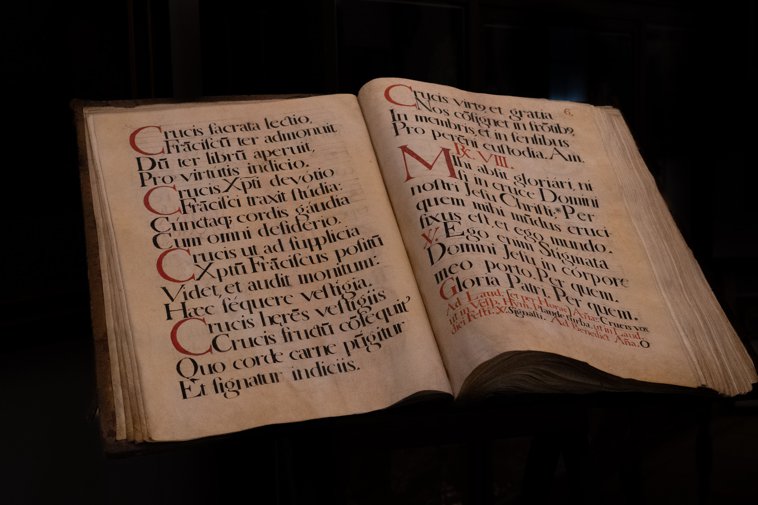 Crucis sacrata lectio,
Frãciscũ ter admonuit,
Dũ ter librũ aperuit,
Pro virtutis indicio.
Crucis Xp̃ti devotio
Frãcisci traxit studia:
Cunctaq; cordis gaudia
Cum omni desiderio.
Crucis ut ad supplicia
Xp̃tũ Frãciscus positũ
Videt, et audit monitum:
Haec, sequere vestigia.
Crucis herẽs vestigiis
Crucis fructũ cõsequit,
Quo corde carne pũgitur
Et signatur indiciis.
6.
Crucis virt9, et gratia
Nos cõsignet in frõtib9
In membris, et in sensibus
Pro perẽni custodia. Am.
R. VIII.
Mihi absit gloriari, ni
si in cruce Domini
nostri Jesu Christi:* Per
quem mihi mũdus cruci
fixus est, et ego mundo.
V. Ego enim Stigmata
Domini Jesu in corpore
meo porto. Per quem.
Gloria Patri. Per quem.
Ad Laud. et per Horas Añae
ut in Vesp. Hymn. Plaude turba, ut in Laud.
diei V. Signasti. Ad Benedict. Aña. O
Crucis vox